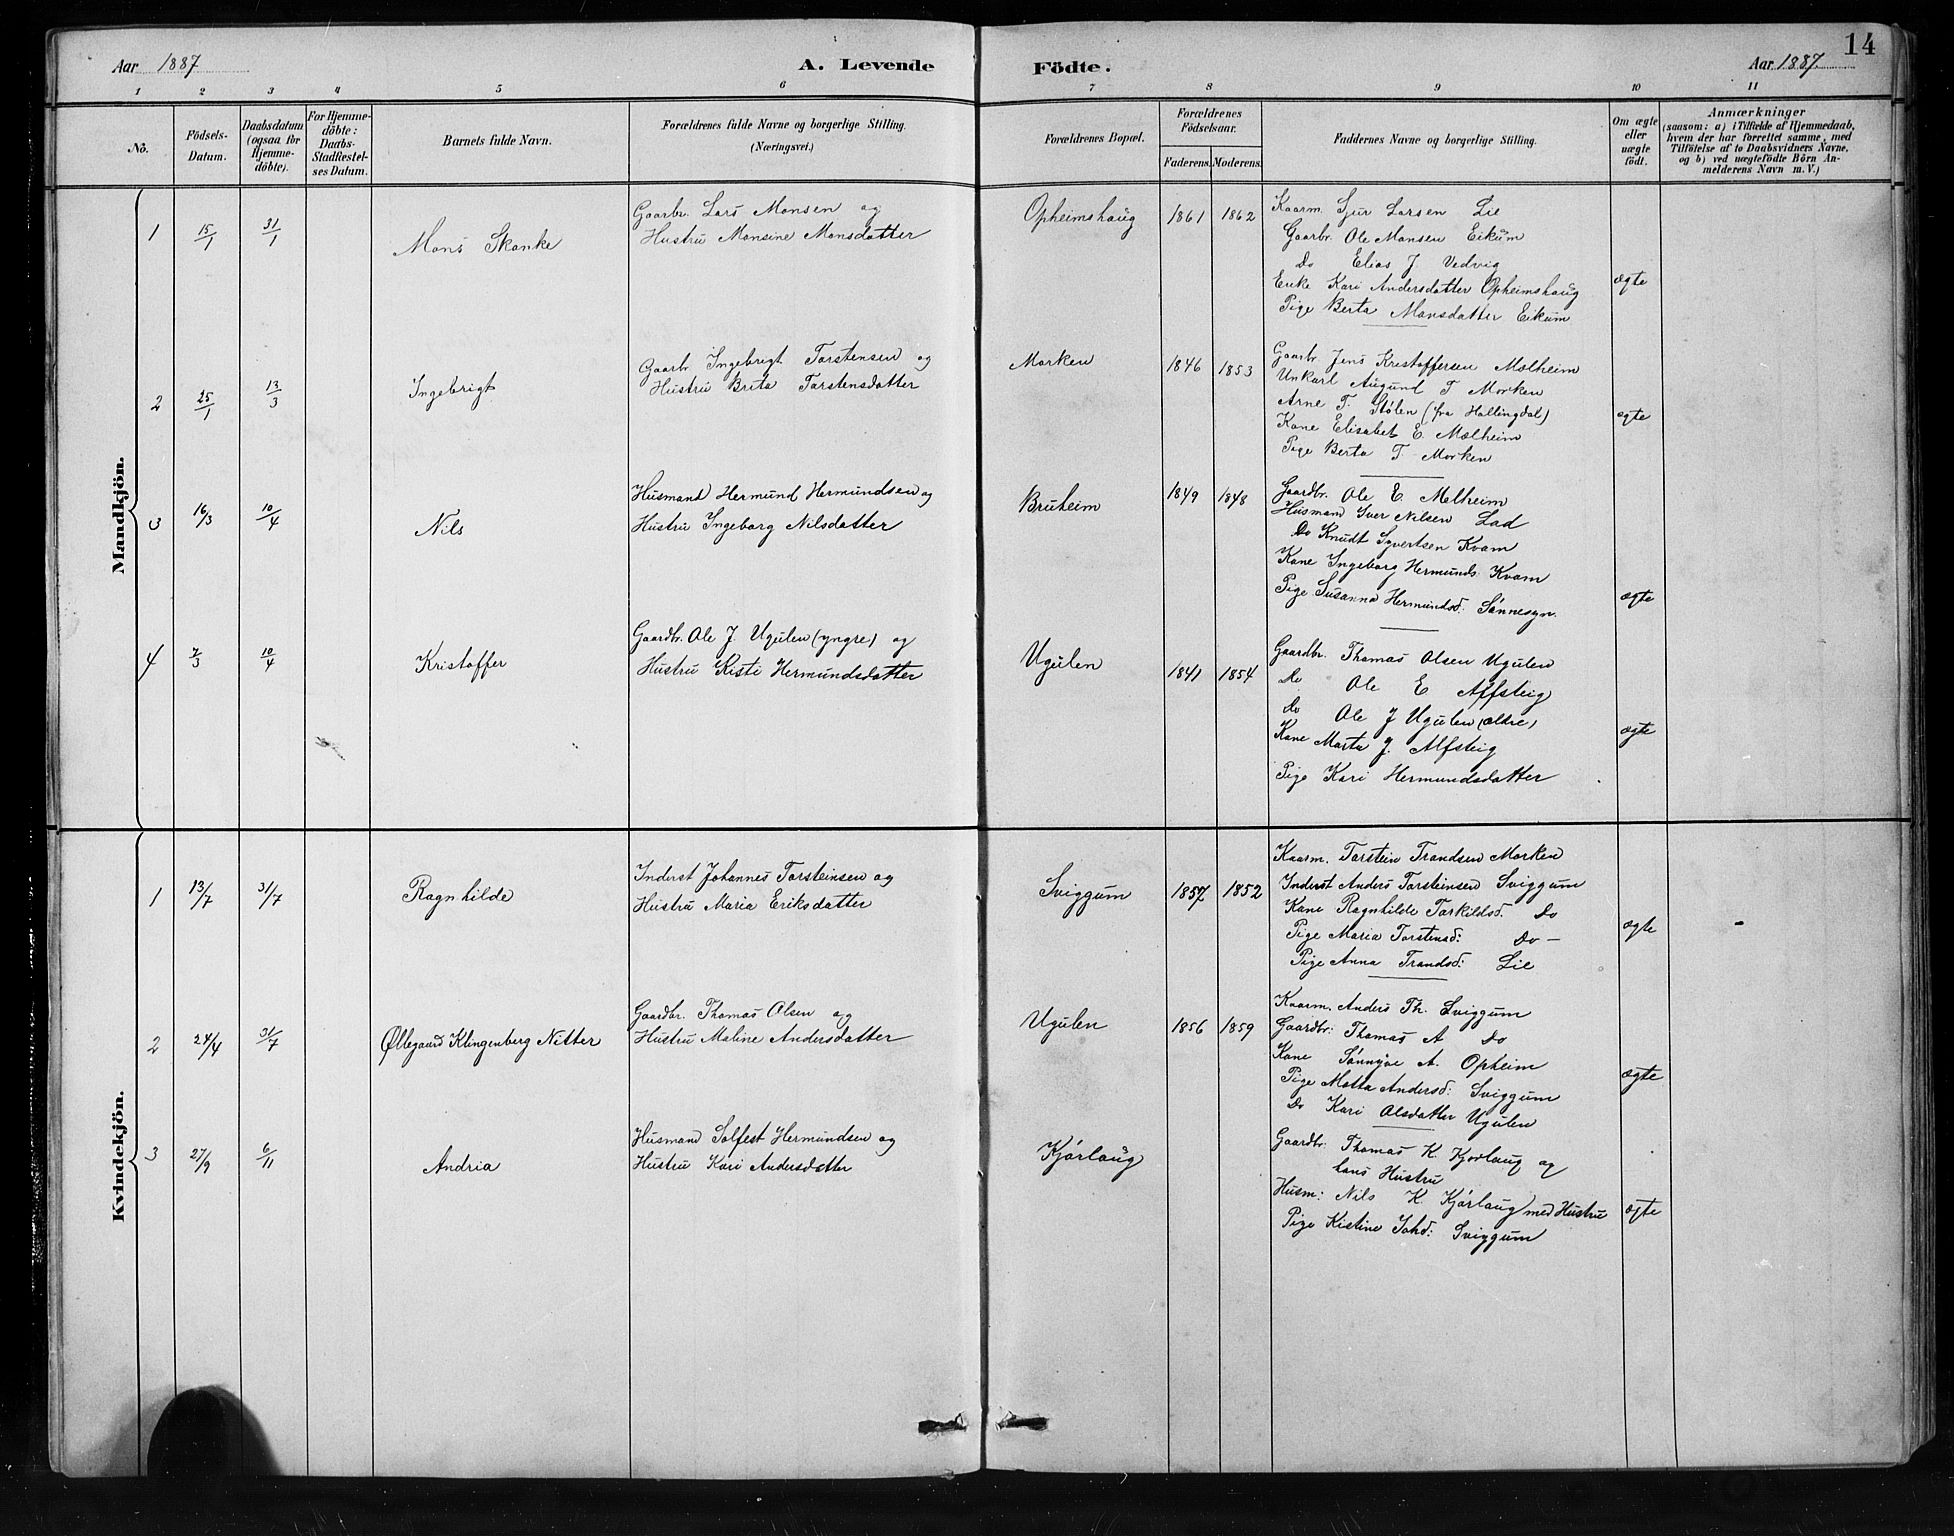 14
Aar 1887
A. Levende
Födte.
Aar 1887
1 2 3 4 5 6 7 8 9 10 11
No.
Födsels-
Datum.
Daabsdatum
(ogsaa for
Hjemme-
döbte).
For Hjemme-
döbte:
Daabs-
Stadfæstel-
ses Datum.
Barnets fulde Navn.
Forældrenes fulde Navne og borgerlige Stilling.
(Næringsvei.)
Forældrenes Bopæl.
Forældrenes
Födselsaar.
Faderens. Moderens.
Faddernes Navne og borgerlige Stilling.
Om ægte
eller
uægte
födt.
Anmærkninger
(saasom: a) i Tilfælde af Hjemmedaab,
hvem der har forrettet samme, med
Tilföielse af to Daabsvidners Navne,
og b) ved uægtefödte Börn An-
melderens Navn m. V.)
Mandkjön.
1
15/1
31/1
Mons Skanke
Gaarbr. Lars Monsen og
Hustru Monsine Monsdatter
Opheimshaug
1861
1862
Kaarm. Sjur Larsen Lie
Gaarbr. Ole Monsen Eikum
Do Elias J. Vedvig
Enke Kari Andersdatter Opheimshaug
Pige Berta Monsdatter Eikum
ægte
2
25/1
13/3
Ingebrigt
Gaarbr Ingebrigt Torstensen og
Hustru Brita Torstensdatter
Morken
1846
1853
Gaarbr. Jens Kristoffersen Mælheim
Unkarl Augund T Morken
Arne T. Stølen (fra Hallingdal)
Kone Elisabet E. Mælheim
Pige Berta T. Morken
ægte
3
16/3
10/4
Nils
Husmand Hermund Hermundsen og
Hustru Ingeborg Nilsdatter
Bruheim
1849
1848
Gaardbr. Ole E. Melheim
Husmand Iver Nilsen Lad
Do Knudt Syvertsen Kvam
Kone Ingeborg Hermunds. Kvam
Pige Susanna Hermundsd: Sönnesyn.
ægte
4
7/3
10/4
Kristoffer
Gaardbr. Ole J. Ugulen (yngre) og
Hustru Kisti Hermundsdatter
Ugulen
1841
1854
Gaardbr. Thomas Olsen Ugulen
Do Ole E Affsteig
Do Ole J Ugulen (ældre)
Kone Marta J. Alfsteig
Pige Kari Hermundsdatter
ægte
Kvindekjön.
1
13/7
31/7
Ragnhilde
Inderst Johannes Torsteinsen og
Hustru Maria Eriksdatter
Sviggum
1857
1852
Kaarm. Torstein Trondsen Morken
Inderst Anders Torsteinsen Sviggum
Kone Ragnhilde Torkildsd. Do
Pige Maria Torstensd: Do —
Pige Anna Trondsd: Lie
ægte
-
2
24/4
31/7
Øllegaard Klingenberg Nitter
Gaardbr. Thomas Olsen og
Hustru Maline Andersdatter
Ugulen
1856
1859
Kaarm. Anders Th. Sviggum
Gaardbr: Thomas A Do
Kone Sönnøve A. Opheim
Pige Matta Andersd: Sviggum
Do Kari Olsdatter Ugulen
ægte
3
27/9
6/11
Andria
Husmand Solfest Hermundsen og
Hustru Kari Andersdatter
Kjörlaug
Gaardbr: Thomas K. Kjorlaug og
hans Hustru
Husm: Nils K. Kjörlaug med Hustru
Pige Kistine Johd: Sviggum
ægte